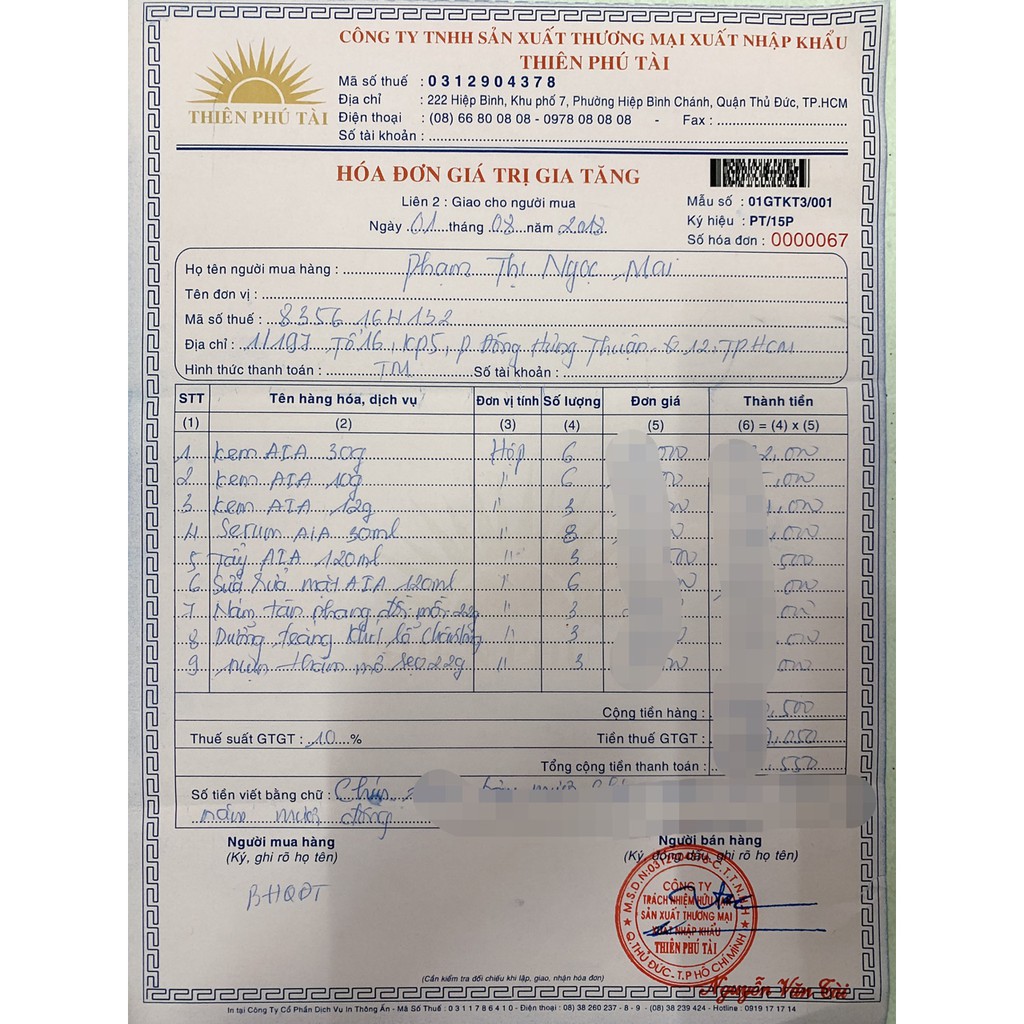 CÔNG TY TNHH SẢN XUẤT THƯƠNG MẠI XUẤT NHẬP KHẨU
THIÊN PHÚ TÀI
THIÊN PHÚ TÀI
Mã số thuế : 0312904378
Địa chỉ : 222 Hiệp Bình, Khu phố 7, Phường Hiệp Bình Chánh, Quận Thủ Đức, TP.HCM
Điện thoại : (08) 66 80 08 08 - 0978 08 08 08 - Fax :
Số tài khoản :
HÓA ĐƠN GIÁ TRỊ GIA TĂNG
Liên 2 : Giao cho người mua
Ngày 01 tháng 08 năm 2018
Mẫu số : 01GTKT3/001
Ký hiệu : PT/15P
Số hóa đơn : 0000067
Họ tên người mua hàng : Phạm Thị Ngọc Mai
Tên đơn vị :
Mã số thuế : 8356 164 132
Địa chỉ : 1/197 Tổ 16, KP5, P Đông Hưng Thuận Q 12 TPHCM
Hình thức thanh toán : TM Số tài khoản :
STT Tên hàng hóa, dịch vụ Đơn vị tính Số lượng Đơn giá Thành tiền
(1) (2) (3) (4) (5) (6) = (4) x (5)
1 Kem AIA 30g Hộp 6 000 2,000
2 Kem AIA 10g " 6 000 ,000
3 Kem AIA 12g " 3 ,000
4 Serum AIA 30ml " 8 000 ,000
5 Tẩy AIA 120ml " 3 000 500
6 Sữa rửa mặt AIA 120ml " 6 000 000
7 Nám tàn nhang đồi mồi 22g " 3 000
8 Dưỡng trắng khít lỗ chân lông " 3 000 000
9 mụn thâm mờ sẹo 22g " 3 000 000
Cộng tiền hàng : ,500
Thuế suất GTGT : 10 % Tiền thuế GTGT : ,050
Tổng cộng tiền thanh toán : 550
Số tiền viết bằng chữ : Chín
năm mươi đồng
Người mua hàng Người bán hàng
(Ký, ghi rõ họ tên) (Ký, đóng dấu, ghi rõ họ tên)
BHQĐT
CÔNG TY
TRÁCH NHIỆM HỮU HẠN
SẢN XUẤT THƯƠNG MẠI
XUẤT NHẬP KHẨU
THIÊN PHÚ TÀI
Q.THỦ ĐỨC - T.P HỒ CHÍ MINH
Nguyễn Văn Tài
(Cần kiểm tra đối chiếu khi lập, giao, nhận hóa đơn)
In tại Công Ty Cổ Phần Dịch Vụ In Thông Ấn - Mã Số Thuế : 0311786410 - Điện thoại : (08) 38 260 237 - 8 - 9 - (08) 38 239 424 - Hotline : 0919 17 17 14